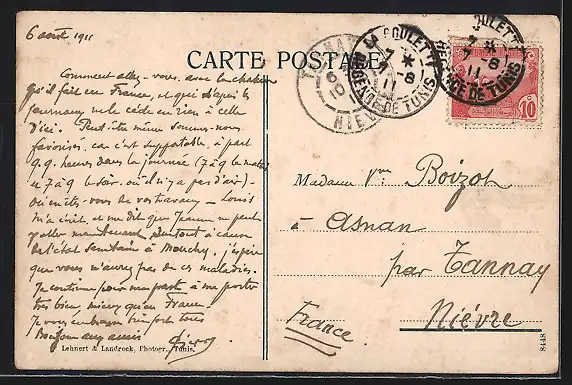 6 août 1911
CARTE POSTALE
Comment allez-vous avec la chaleur
qu'il fait en France, et qui d'après les
journaux ne le cède en rien à celle
d'ici. Peut-être même sommes-nous
favorisés, car c'est supportable, à part
q.q. heures dans la journée (7 à 9 le matin
et 7 à 9 le soir, où il n'y a pas d'air).
où en êtes-vous de vos travaux - Louis
m'a écrit, et me dit que Jeanne ne peut
y aller maintenant, surtout à cause
de l'état sanitaire à Mouchy, j'espère
que vous n'aurez pas de ces maladies.
Je continue pour ma part à me porter
très bien, mieux qu'en France.
Je vous embrasse bien fort tous
Bonjour aux amis
Lehnert & Landrock, Photogr., Tunis.
LA GOULETTE
7 -8
11
RÉGENCE DE TUNIS
TANNAY
NIÈVRE
LA GOULETTE
7 -8
11
RÉGENCE DE TUNIS
10
Madame Vve Boizot
à Asnan
par Tannay
Nièvre
France
8448